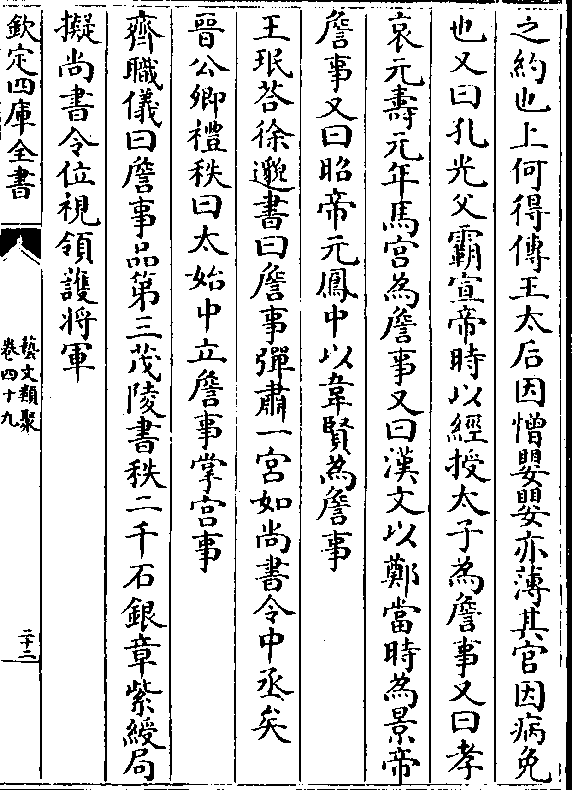 之約也上何得傳王太后因憎嬰嬰亦薄其官因病免
也又曰孔光父霸宣帝時以經授太子為詹事又曰孝
哀元壽元年馬宮為詹事又曰漢文以鄭當時為景帝
詹事又曰昭帝元鳳中以韋賢為詹事
王珉答徐邈書曰詹事彈肅一宮如尚書令中丞矣
晉公卿禮秩曰太始中立詹事掌宮事
齊職儀曰詹事品第三茂陵書秩二千石銀章紫綬局
擬尚書令位視領護將軍
欽定四庫全書
藝文類聚
卷四十九
二十二